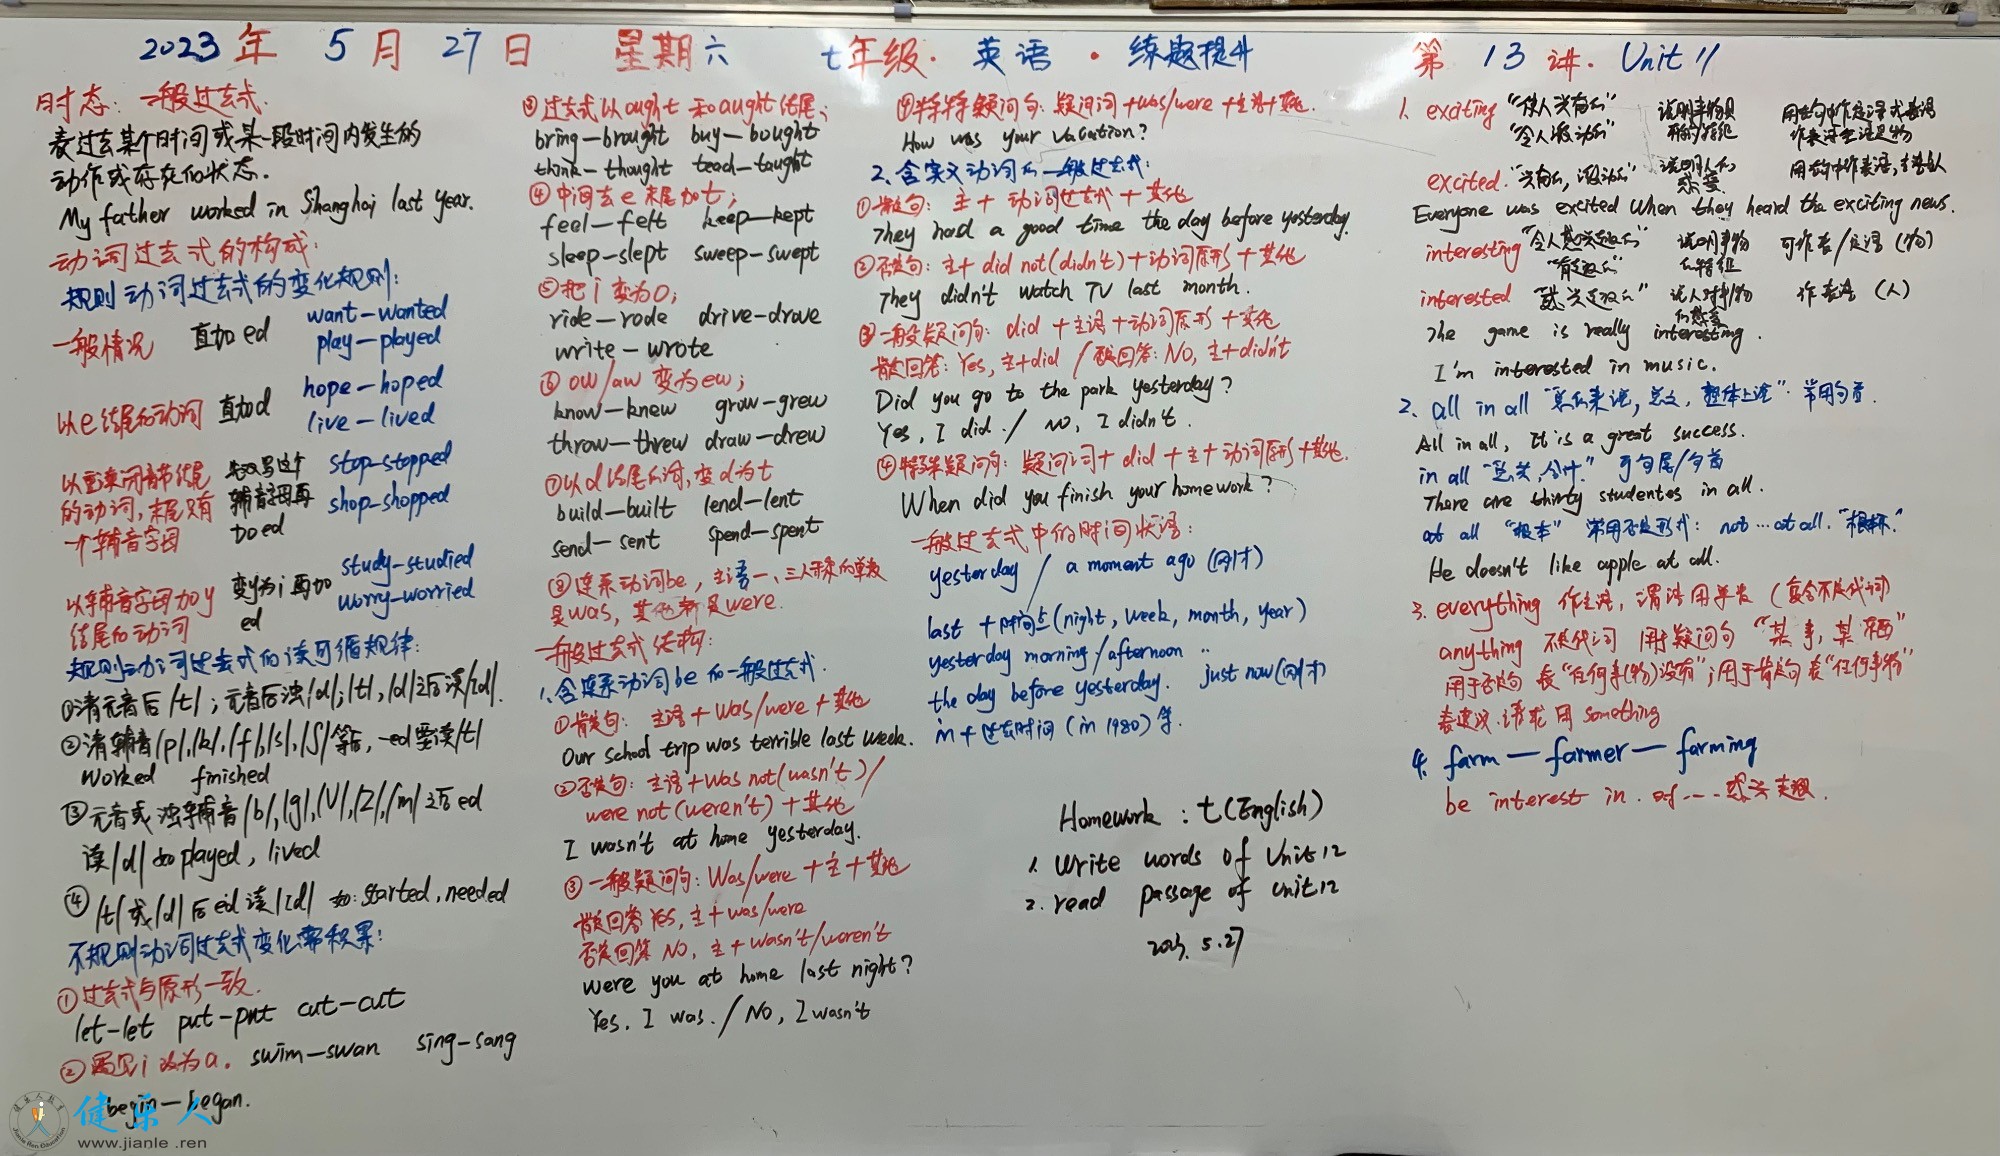 2023年 5月 27日 星期六 七年级·英语·练题提升 第13讲·Unit 11
时态：一般过去式.
表过去某个时间或某一段时间内发生的
动作或存在的状态.
My father worked in Shanghai last year.
动词过去式的构成：
规则动词过去式的变化规则：
一般情况 直加ed want—wanted
play—played
以e结尾的动词 直加d hope—hoped
live—lived
以重读闭音节结尾 先双写这个 stop—stopped
的动词，末尾只有 辅音字母再 shop—shopped
一个辅音字母 加ed
以辅音字母加y 变y为i再加 study—studied
结尾的动词 ed worry—worried
规则动词过去式的读可循规律：
①清元音后/t/；元音后浊/d/；/t/,/d/之后读/ɪd/.
②清辅音/p/,/k/,/f/,/s/,/ʃ/等后，-ed要读/t/
worked finished
③元音或浊辅音/b/,/g/,/v/,/z/,/m/之后ed
读/d/如played, lived
④/t/或/d/后ed读/ɪd/ 如：started, needed
不规则动词过去式变化需积累：
①过去式与原形一致.
let—let put—put cut—cut
②遇见i改为a. swim—swan sing—sang
begin—began.
③过去式以ought和aught结尾；
bring—brought buy—bought
think—thought teach—taught
④中间去e末尾加t；
feel—felt keep—kept
sleep—slept sweep—swept
⑤把i变为o；
ride—rode drive—drove
write—wrote
⑥ow/aw变为ew；
know—knew grow—grew
throw—threw draw—drew
⑦以d结尾的词，变d为t
build—built lend—lent
send—sent spend—spent
⑧连系动词be，主语一、三人称的单数
是was，其他都是were.
一般过去式结构：
1.含连系动词be的一般过去式.
①肯定句：主语+was/were+其他
Our school trip was terrible last week.
②否定句：主语+was not(wasn't)/
were not(weren't)+其他
I wasn't at home yesterday.
③一般疑问句：Was/were+主+其他
肯定回答 Yes, 主+was/were
否定回答 No, 主+wasn't/weren't
Were you at home last night?
Yes, I was. / No, I wasn't
④特殊疑问句：疑问词+was/were+主语+其他.
How was your vacation?
2.含实义动词的一般过去式：
①肯定句：主+动词过去式+其他
They had a good time the day before yesterday.
②否定句：主+did not(didn't)+动词原形+其他
They didn't watch TV last month.
③一般疑问句：did+主语+动词原形+其他
肯定回答：Yes, 主+did / 否定回答：No, 主+didn't
Did you go to the park yesterday?
Yes, I did. / No, I didn't.
④特殊疑问句：疑问词+did+主+动词原形+其他.
When did you finish your homework?
一般过去式中的时间状语：
yesterday / a moment ago (刚才)
last+时间点(night, week, month, year)
yesterday morning/afternoon ..
the day before yesterday. just now(刚才)
in+过去时间 (in 1980) 等.
Homework : t(English)
1. Write words of Unit 12
2. read passage of unit 12
2023. 5.27
1. exciting "使人兴奋的" 说明事物具 用在句中作定语或表语
"令人激动的" 有的特征 作表语主语是物
excited. "兴奋的，激动的" 说明人的感受 用在句中作表语，主语是人
Everyone was excited when they heard the exciting news.
interesting "令人感兴趣的" 说明事物 可作表/定语（物）
"有趣的" 的特征
interested "感兴趣的" 说人对事物的感受 作表语（人）
The game is really interesting.
I'm interested in music.
2. all in all "总的来说，总之，整体上说". 常用句首.
All in all, It is a great success.
in all "总共，合计." 可句尾/句首
There are thirty studentes in all.
at all "根本" 常用否定形式：not…at all. "根本不."
He doesn't like apple at all.
3. everything 作主语，谓语用单数（复合不定代词）
anything 不定代词 用于疑问句 "某事，某东西"
用于否定句 表"任何事(物)没有"；用于肯定句 表"任何事物"
表建议.请求 用 something
4. farm — farmer — farming
be interest in. 对....感兴趣.
健乐人
www.jianle.ren